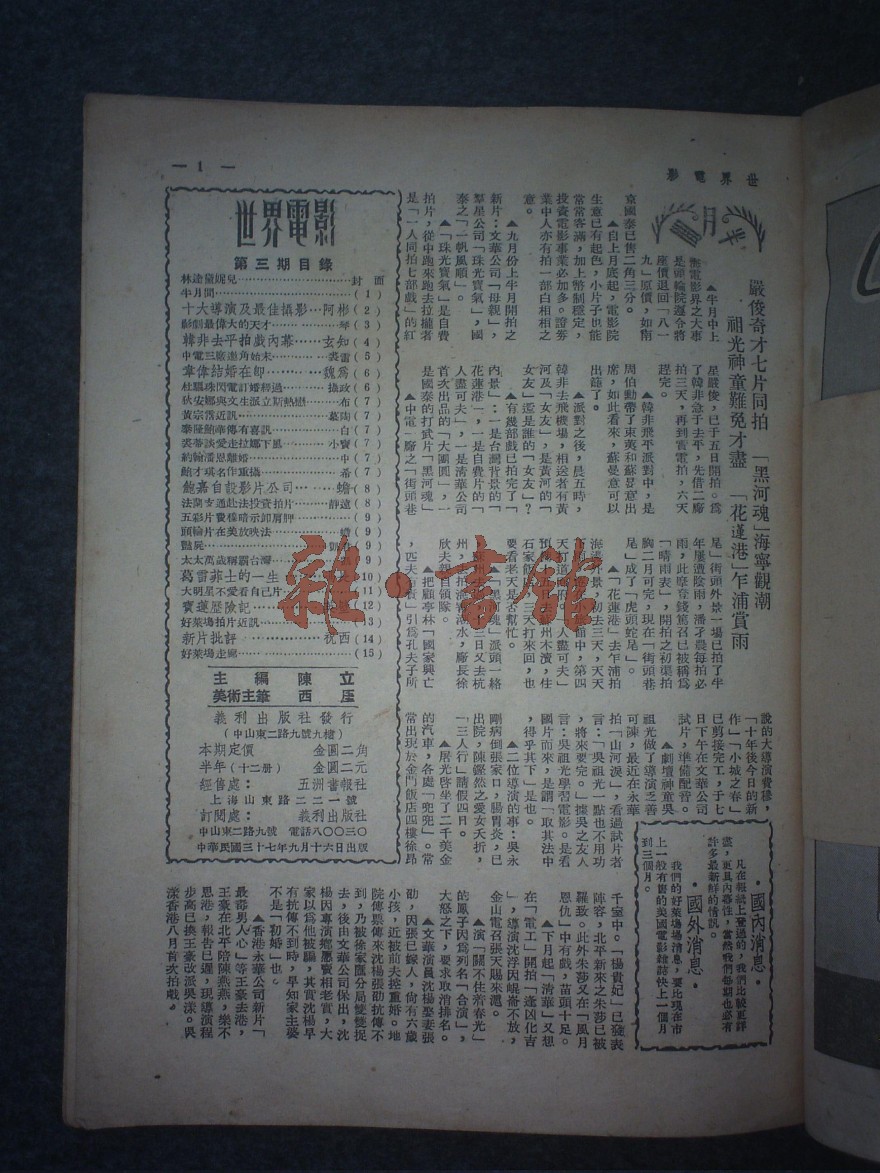 影電界世
— 1 —
半月聞
嚴俊奇才七片同拍 「黑河魂」海寧觀潮
祖光神童難免才盡 「花蓮港」乍浦賞雨
▲半月中上
海電影界之大事
是頭輪院遵令將
座價退回「八一
九」原價，如南
京國泰已售二角三分。
▲自上月底起，電影院
生意已有起色，小片子也能
常常客滿，加上幣制穩定，
投資電影事業必加多。證券
業中人亦有拍一部白相相之
意。
▲九月份上半月開拍之
新片：文華公司「母親」，
羣星公司「珠光寶氣」，國
泰之「一帆風順」。
▲「珠光寶氣」是自費
拍片，從中跑來跑去拉攏者
是「一人同拍七部戲」的紅
星嚴俊，已于五日開拍。爲
了韓非急于去平，先借二廠
拍三天，再到實電拍，六天
趕完。
▲韓非飛平派對中，是
周伯勳帶了東英和蘇曼意出
席，如此看來，蘇曼意可以
出籠了。
▲派對之後，晨五時，
韓非去飛機場，相送者有黃
河及「女友」，是黃河的「
女友」還是誰的「女友」？
▲有幾部戲已拍完了「
內景」：一是台灣背景的「
花蓮港」，一是自費片的「
人盡可夫」，一是清華公司
首次出品的「大團圓」，一
是國泰的打武片「黑河魂」
▲中電一廠之「街頭巷
尾」街頭外景一場已拍了半
年屢遭陰雨，潘孑農每拍必
雨，此摩登錢篤召已被稱爲
「晴雨表」，開拍之初渠拍
胸二月可完，現在「街頭巷
尾」成了「虎頭蛇尾」。
▲「花蓮港」去乍浦拍
海
要看老天是否幫忙。
▲「黑河魂」派頭一絡
欣夫親自領隊。
▲把顧亭林「國家興亡
，匹夫有責」引爲孔夫子所
說的大導演費穆，
「十年後今日的新
作」「小城之春」
已剪接完工，于七
日下午在文華公司
試片，準備配音。
▲劇壇神童吳
祖光做了導演乏善
可陳，最近在永華
拍「山河淚」，看過試片者
言：「吳祖光一點也不用功
，將來要完。」據吳之友人
言：吳祖光學習電影。是看
國片而來，是謂「取其法中
，得乎其下」是也。
▲二位導演的事：吳永
剛病倒張家口，腸胃炎，已
出院，陳鏗然之愛女夭折，
「三人行」請假四日。
▲屠光啓坐了二千美金
的汽車，各處「兜兜」。常
常出現於金門飯店四樓徐昂
千室中。「楊貴妃」已發表
陣容，北平新來之朱莎已被
羅致。此外朱莎又在「風月
恩仇」中有戲，苗頭十足。
▲下月起「清華」又想
在「電工」開拍「逢凶化吉
」，導演沈浮因崐崙不放，
金山電召張天賜來滬。
▲演「關不住着春光」
的鳳子因爲列名「合演」，
大怒之下，要求取消排名。
▲文華演員沈楊娶妻張
劭，因張已嫁人，尙有六歲
小孩，近被前夫控重婚。地
院傳票傳來沈楊張劭抗傳不
到，乃被徐家匯分局雙雙捉
去，後由文華公司保出，沈
楊因專演鄉愿賣相老實，大
家以爲他被騙，其實沈楊早
有抗傳不到時，早知家主婆
不是「初婚」也。
▲香港永華公司新片「
最毒男人心」等王豪去港，
王豪在北平陪陳燕燕，樂不
思港，報告已遲，現導演程
步高已換王豪改派吳漾。吳
漾香港八月首次拍戲。
·國內消息·
凡在報紙上登過的，我們比較更詳
盡，更具內幕性，當然我們每期也必有
許多最新鮮的情訊。
·國外消息·
我們的好萊塢場消息，要比現在市
上一般有售的美國電影雜誌快上一個月
到三個月。
世界電影
第三期目錄
林達黛妮兒……封面
半月聞……(1)
十大導演及最佳攝影…阿彬(2)
影劇最偉大的天才……琴(3)
韓非去平拍戲內幕……玄知(4)
中電三廠邀角始末……裘雷(5)
韋偉結婚在卽……魏爲(6)
杜驪珠閃電訂婚經過……攝政(6)
狄安娜與文生派立斯熱戀……布(7)
黃宗霑近訊……慕陶(7)
泰隆鮑華傳有喜訊……白(7)
裘蒂談愛走拉娜下風……小寶(7)
約翰潘恩離婚……中(7)
鮑才琪名作重攝……希(7)
鮑嘉自設影片公司……蟾(8)
法蘭支通赴法投資拍片……靜遠(8)
五彩片費樣暗示卸肩胛……(9)
頭輪片在美放映法……(9)
豔屍……(9)
太太萬歲稱霸台灣……(9)
葛雷菲士的一生……(10)
大明星不愛看自己片……(11)
寶蓮歷險記……(12)
好萊塢拍片近訊……(13)
新片批評……祝西(14)
好萊塢走廊……(15)
主編 陳立
美術主筆 西厓
義利出版社發行
(中山東二路九號九樓)
本期定價 金圓二角
半年(十二册) 金圓二元
經售處： 五洲書報社
上海山東路二二一號
訂閱處： 義利出版社
中山東二路九號 電話八〇〇三〇
中華民國三十七年九月十六日出版
雜·書館